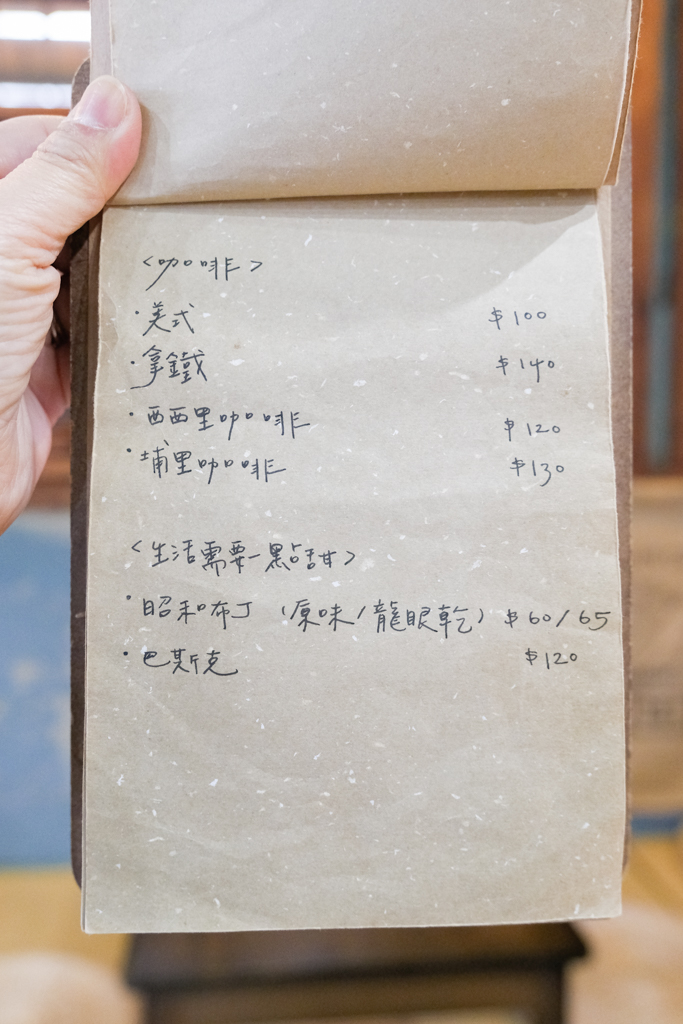 <咖啡>
·美式 $100
·拿鐵 $140
·西西里咖啡 $120
·埔里咖啡 $130
<生活需要一點甜>
·昭和布丁 (原味/龍眼乾) $60/65
·巴斯克 $120